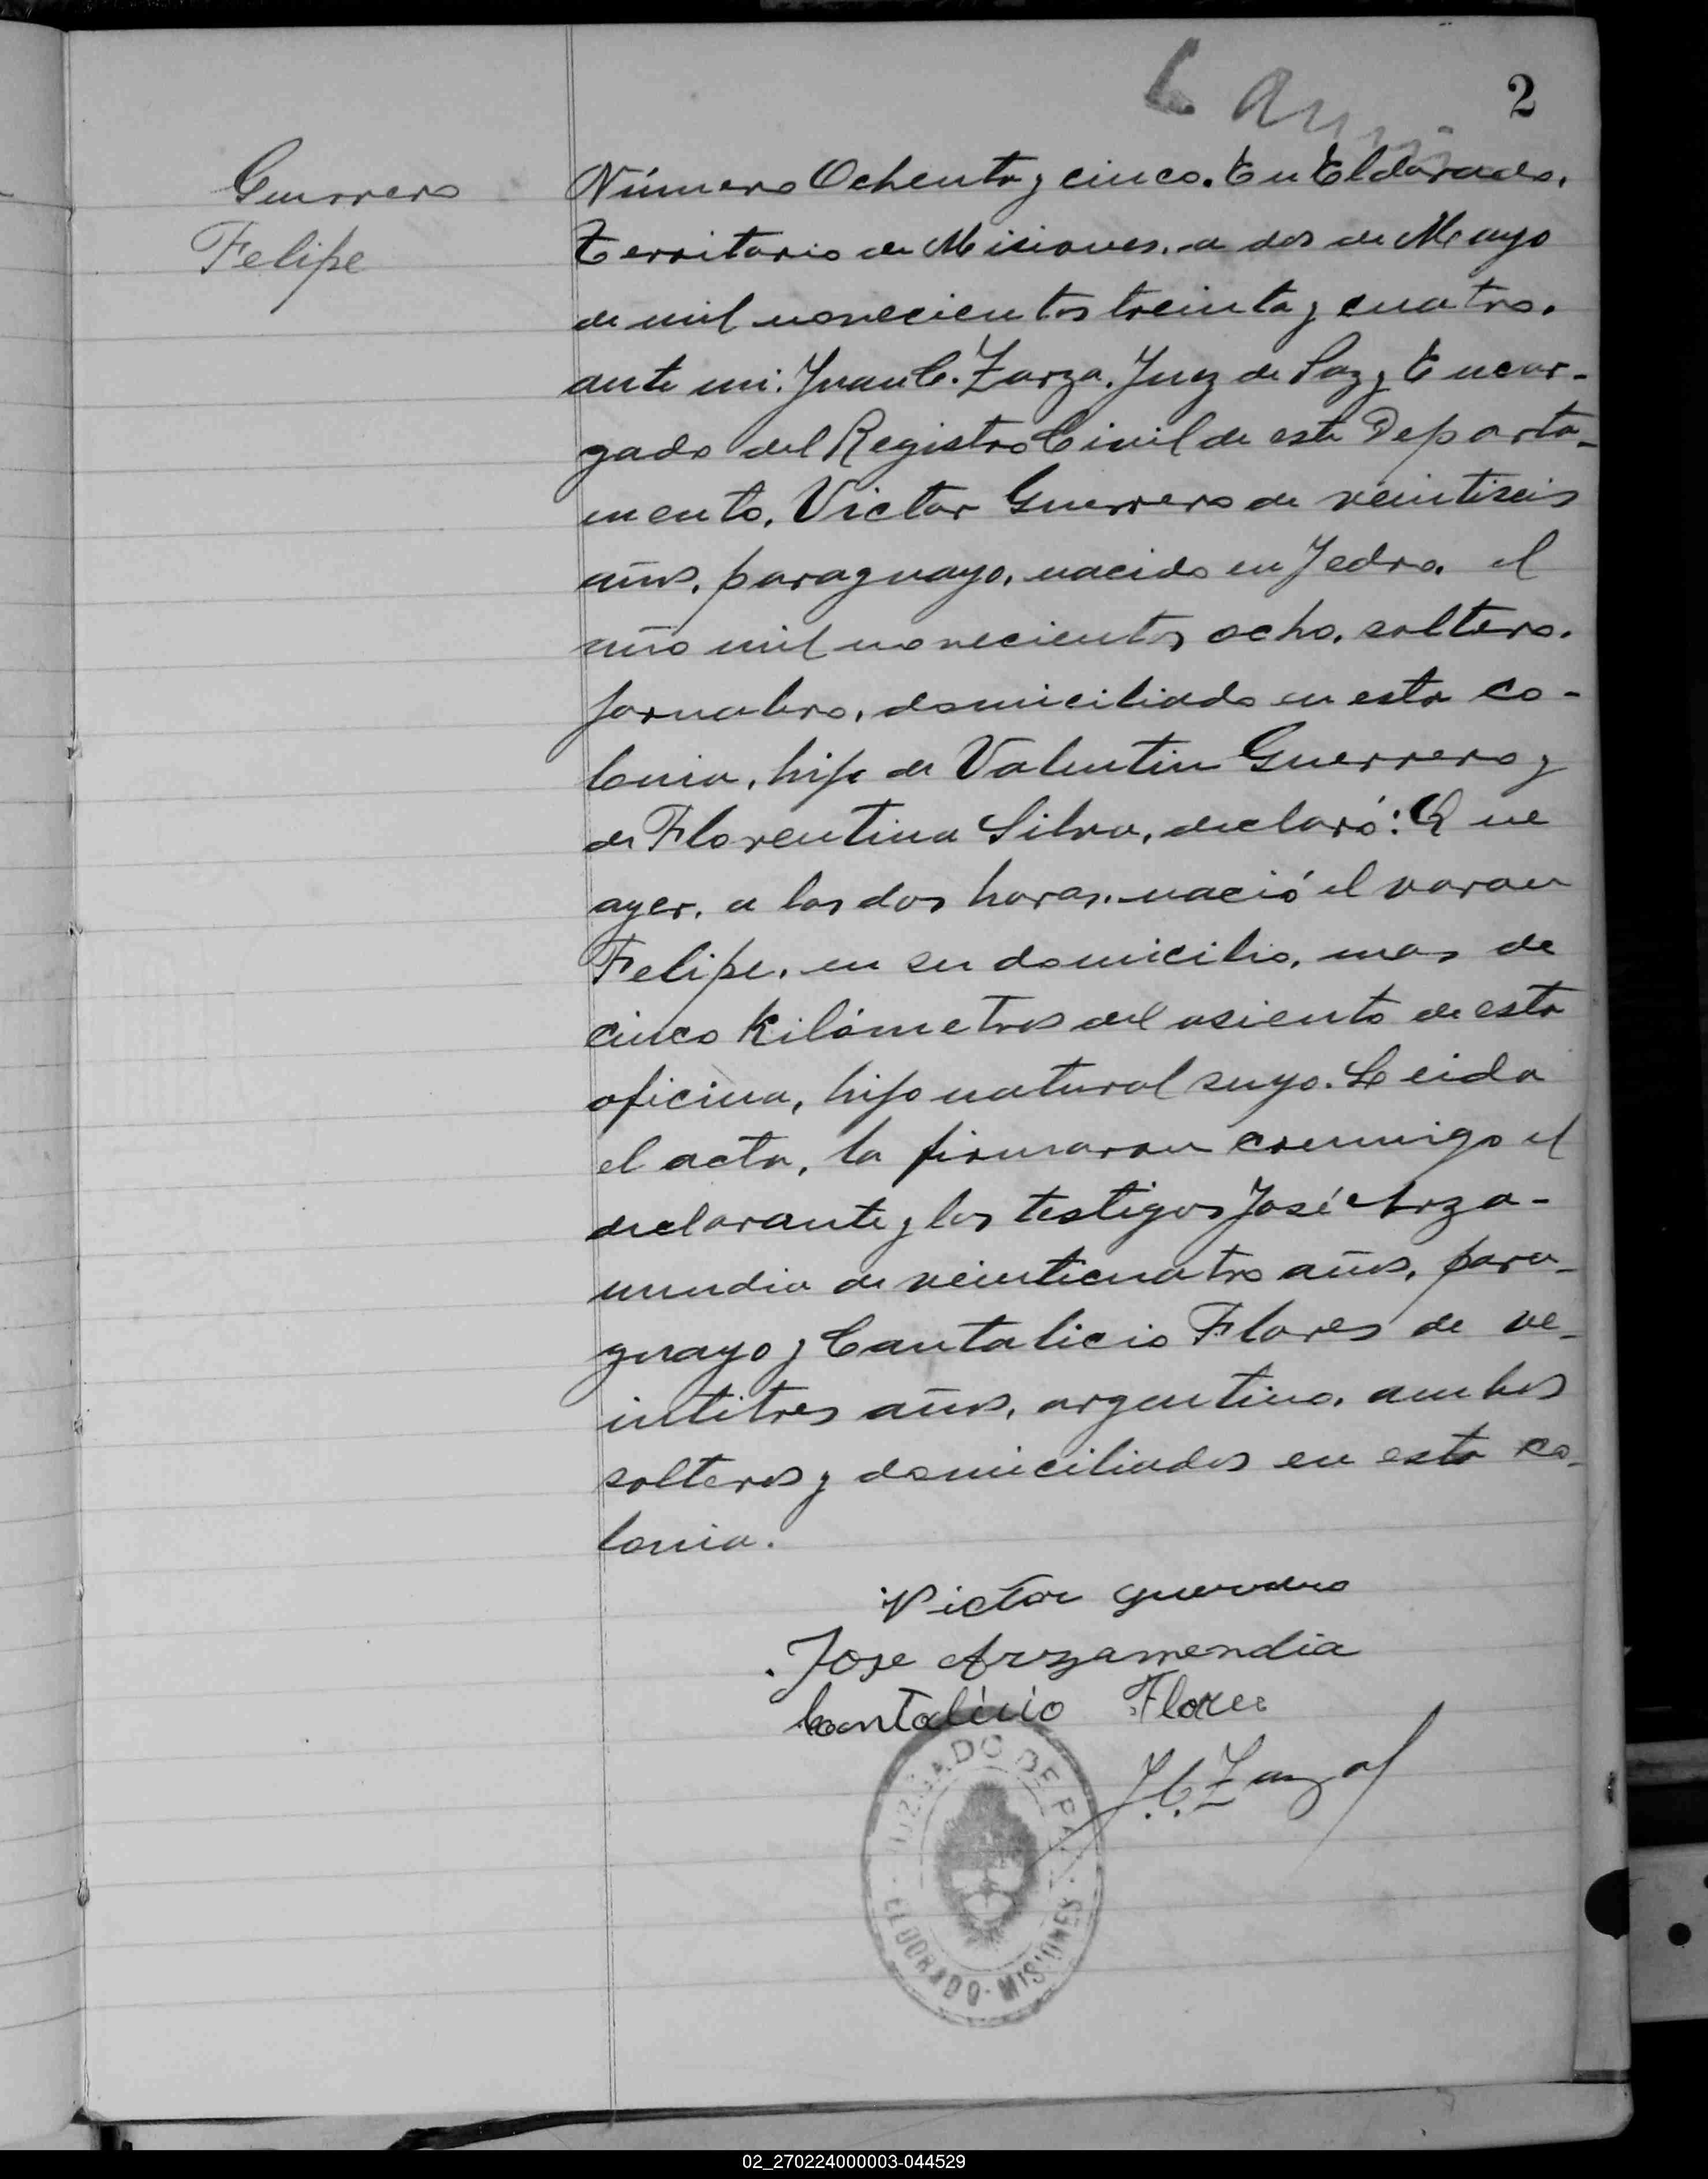 2
Guerrero
Felipe
Número Ochenta y cinco. En Eldorado,
Territorio de Misiones, a dos de Mayo
de mil novecientos treinta y cuatro,
ante mi: Juan C. Zarza, Juez de Paz y Encar-
gado del Registro Civil de este Departa-
mento, Victor Guerrero de veintiseis
años, paraguayo, nacido en Jedro, el
año mil novecientos ocho, soltero,
jornalero, domiciliado en esta co-
lonia, hijo de Valentin Guerrero y
de Florentina Silva, declaró: Que
ayer, a las dos horas, nació el varon
Felipe, en su domicilio, mas de
cinco kilómetros del asiento de esta
oficina, hijo natural suyo. Leida
el acta, la firmaron conmigo el
declarante y los testigos José Arza-
mendia de veinticuatro años, para-
guayo y Cantalicio Flores de ve-
intitres años, argentino, ambos
solteros y domiciliados en esta co-
lonia.
Victor Guerrero
Jose Arzamendia
Cantalicio Flores
J.C. Zarza
JUZGADO DE PAZ
ELDORADO - MISIONES
02_270224000003-044529